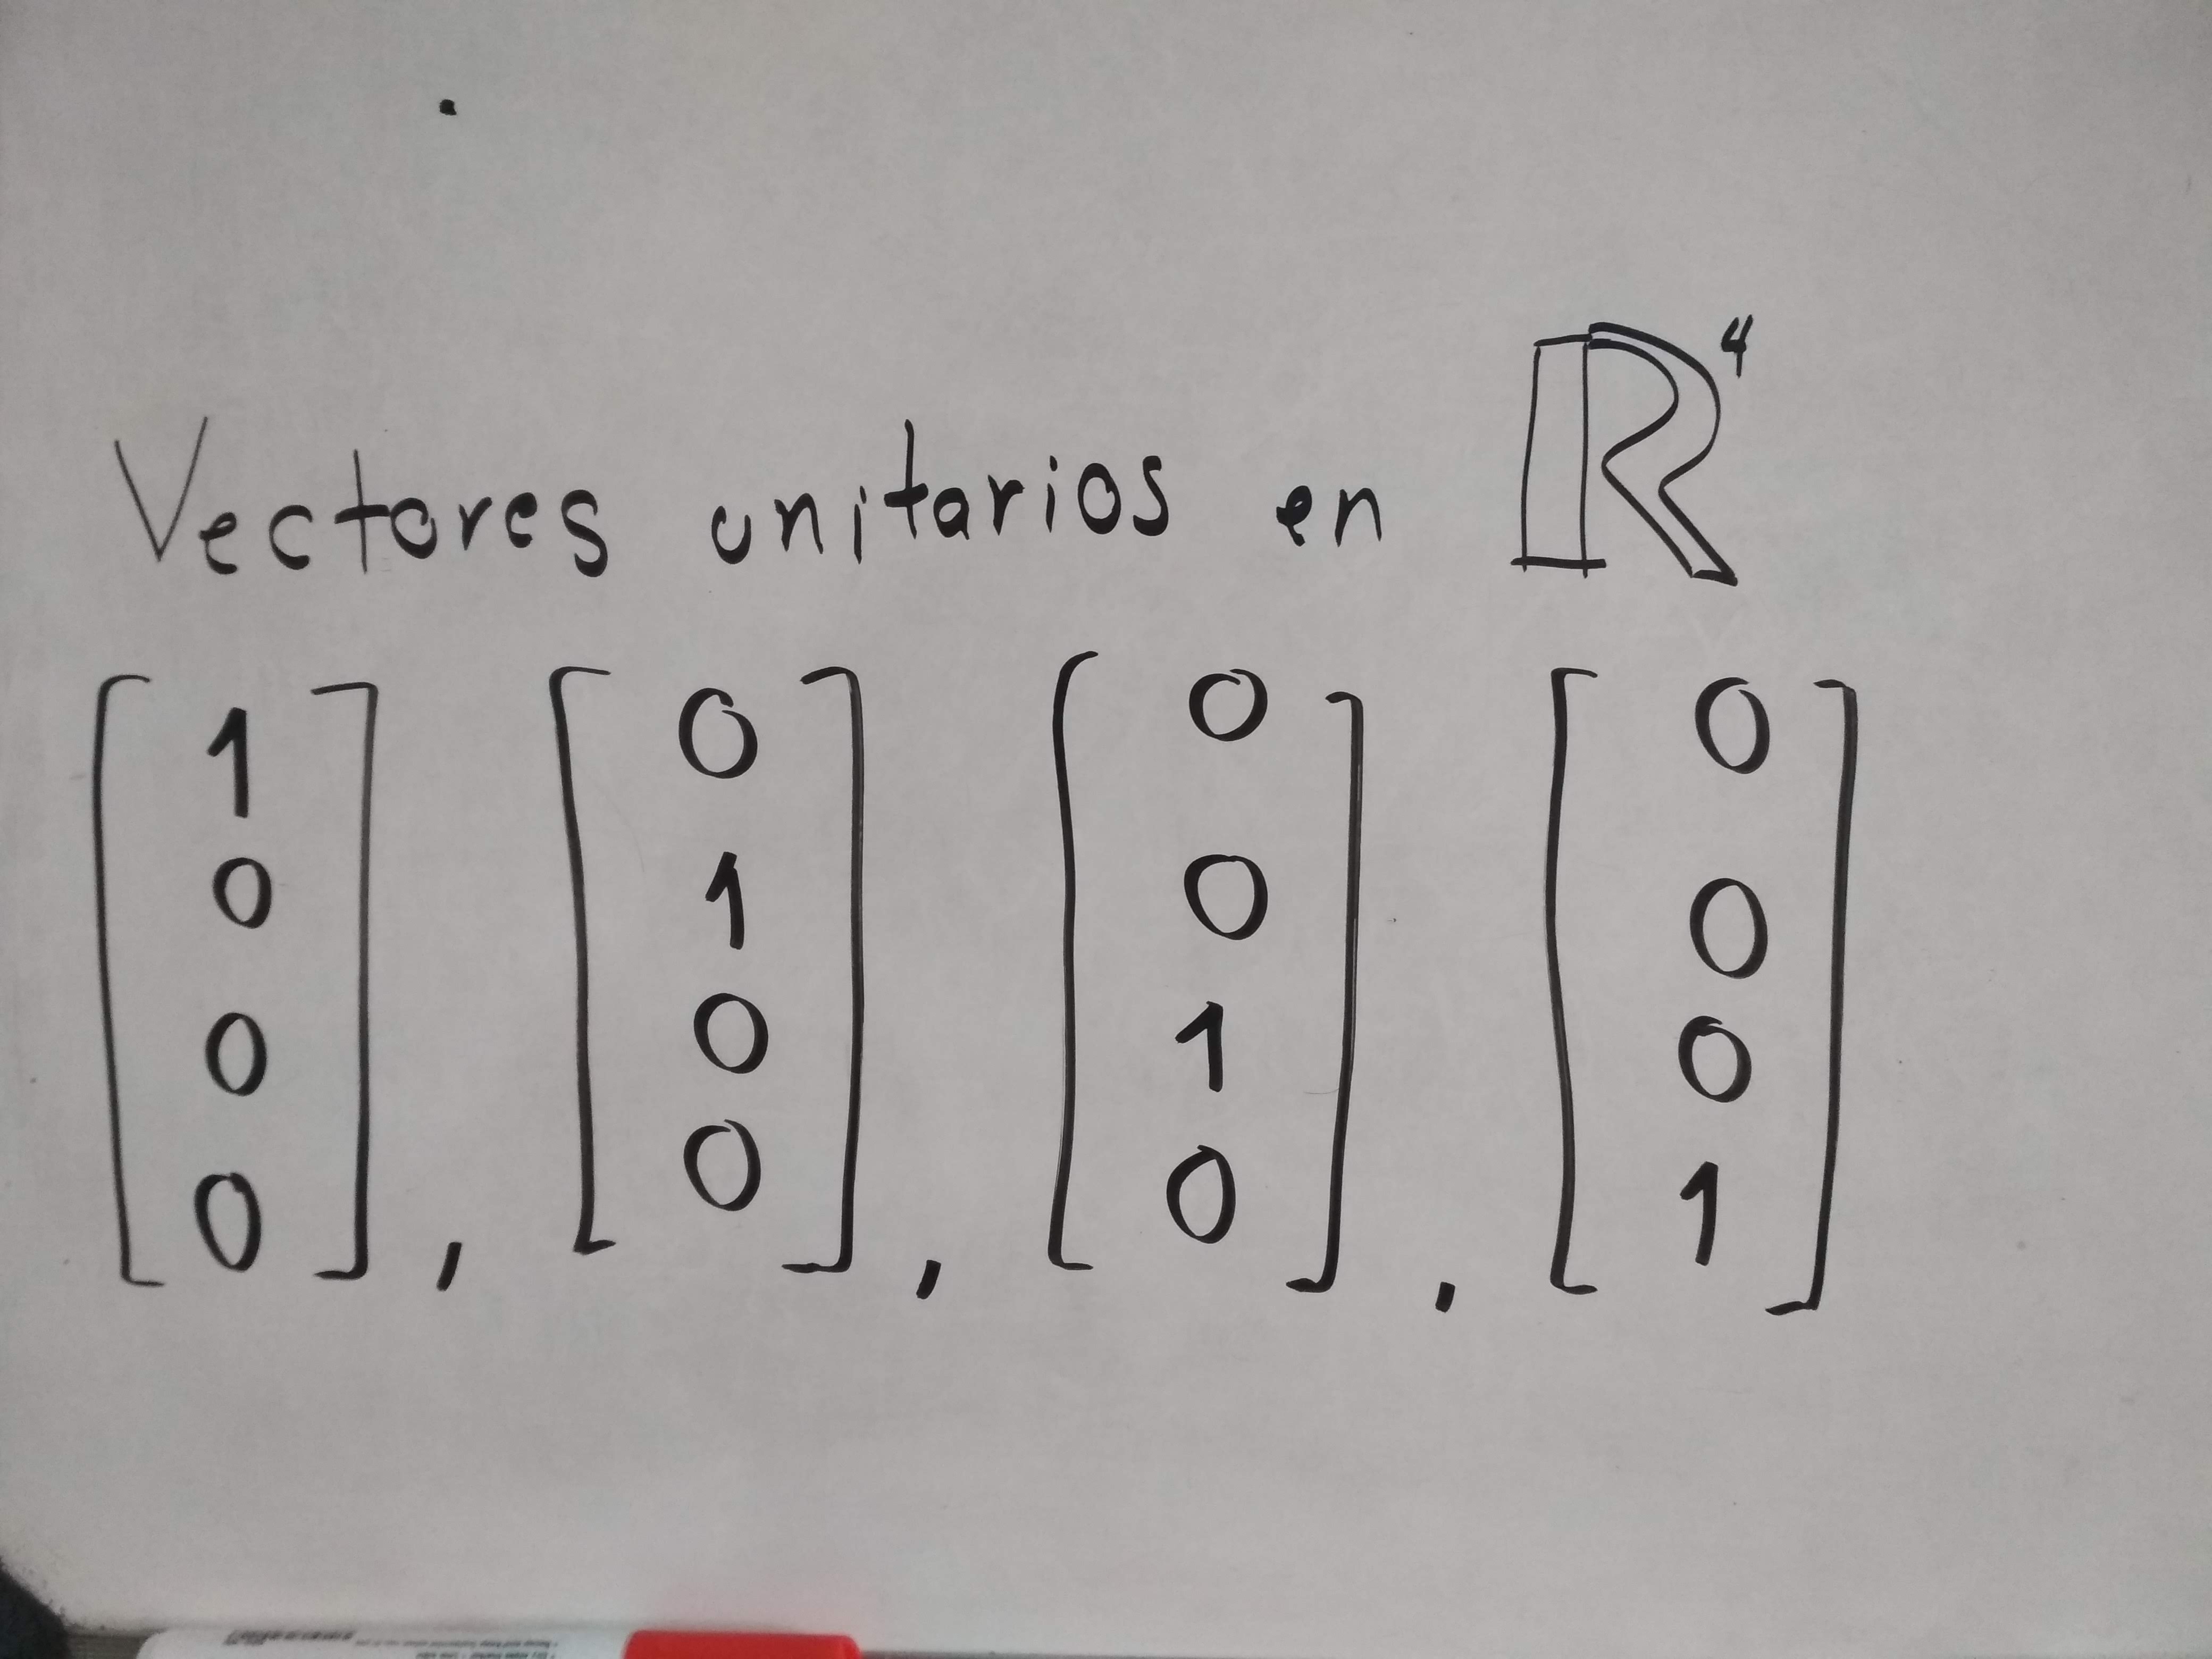 Vectores unitarios en ℝ⁴
[1 0 0 0], [0 1 0 0], [0 0 1 0], [0 0 0 1]